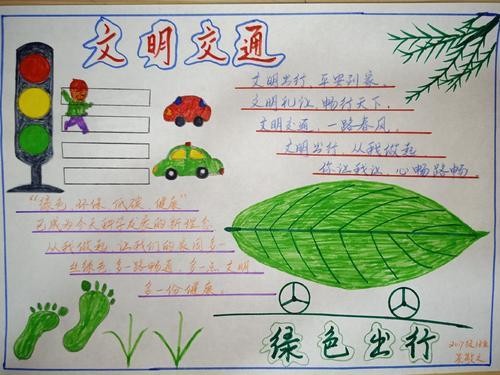 文明交通
文明出行，平安到家。
文明礼让，畅行天下。
文明交通，一路春风。
文明出行，从我做起
你让我让，心畅路畅。
"绿色、环保、低碳、健康"
已成为今天科学发展的新理念
从我做起，让我们的夜间多一
丝绿色，多一路畅通，多一点文明
多一份健康。
绿色出行